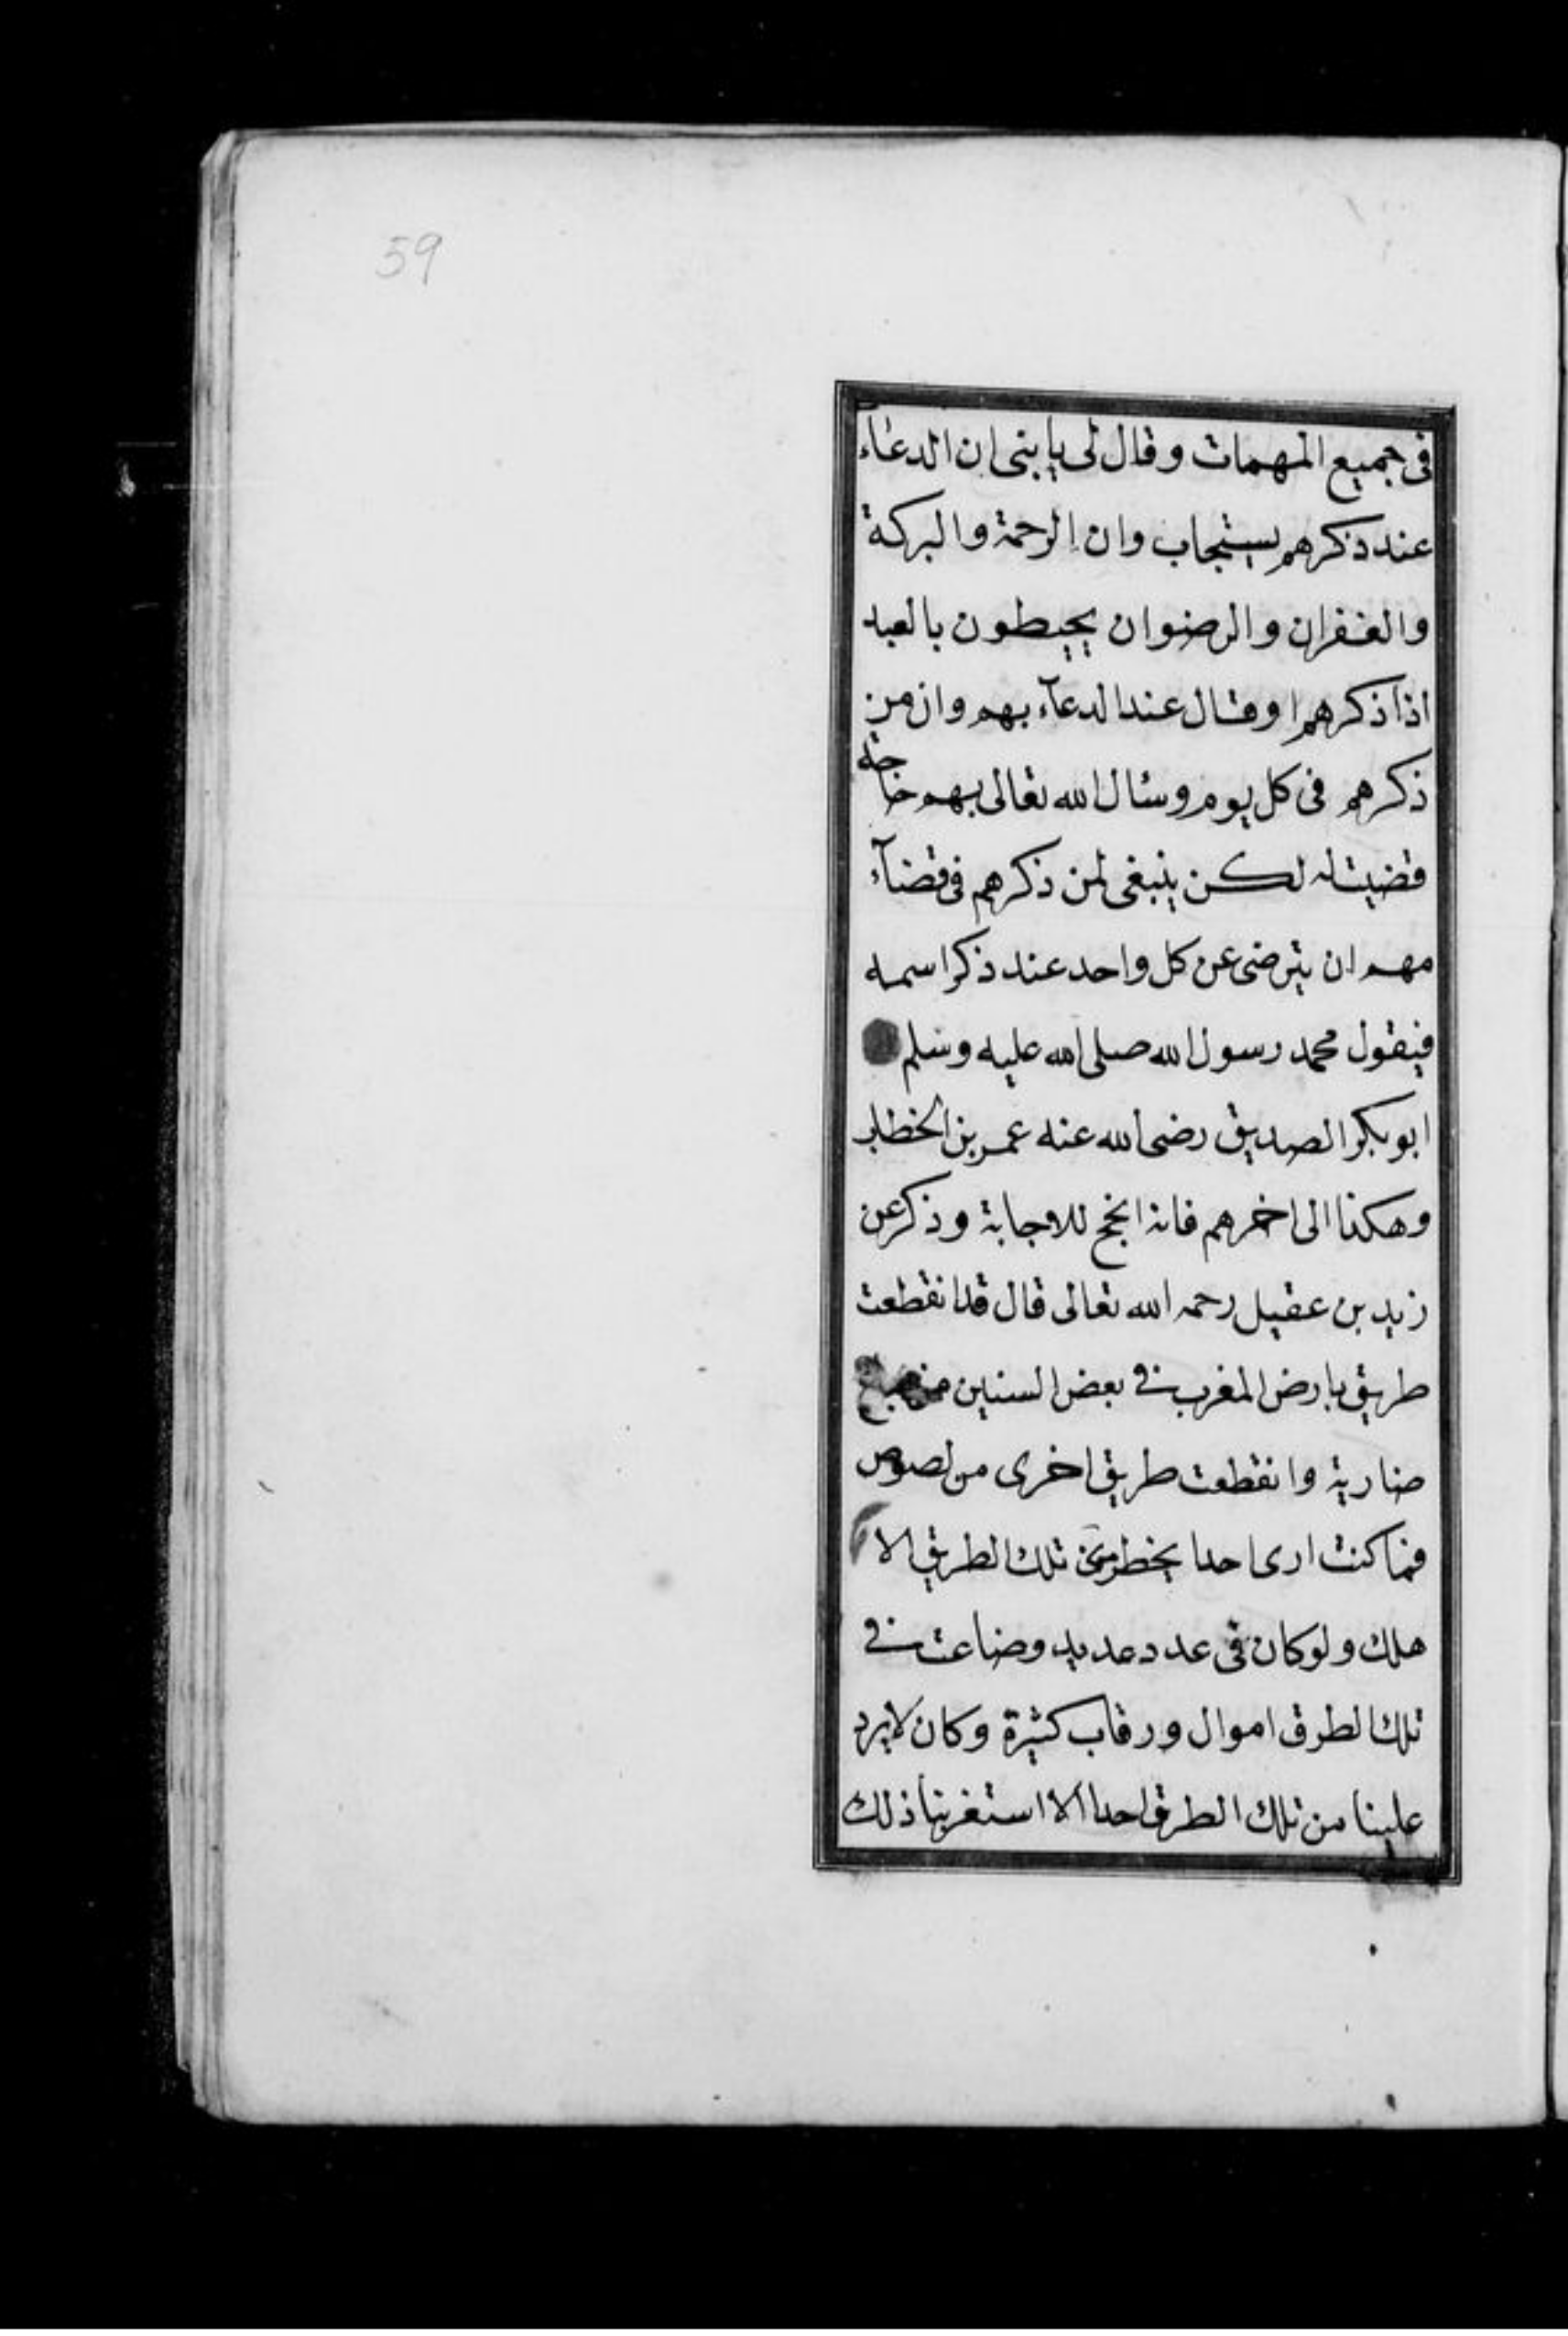 59
فى جميع المهمات وقال لى يا بنى ان الدعاء
عند ذكرهم يستجاب وان الرحمة والبركة
والغفران والرضوان يحيطون بالعبد
اذا ذكرهم او قال عند الدعآء بهم وان من
ذكرهم فى كل يوم وسال الله تعالى بهم حاجة
قضيت له لكن ينبغى لمن ذكرهم فى قضآء
مهم ان يترضى عن كل واحد عند ذكر اسمه
فيقول محمد رسول الله صلى الله عليه وسلم
ابو بكر الصديق رضى الله عنه عمر بن الخطاب
وهكذا الى اخرهم فانه انجح للاجابة وذكر عن
زيد بن عقيل رحمه الله تعالى قال قد انقطعت
طريق بارض المغرب فى بعض السنين من
ضارية وانقطعت طريق اخرى من لصوص
فما كنت ارى احدا يخطر من تلك الطريق الا
هلك ولو كان فى عدد عديد وضاعت فى
تلك الطرق اموال ورقاب كثيرة وكان لا يرد
علينا من تلك الطرق احدا الا استغربنا ذلك